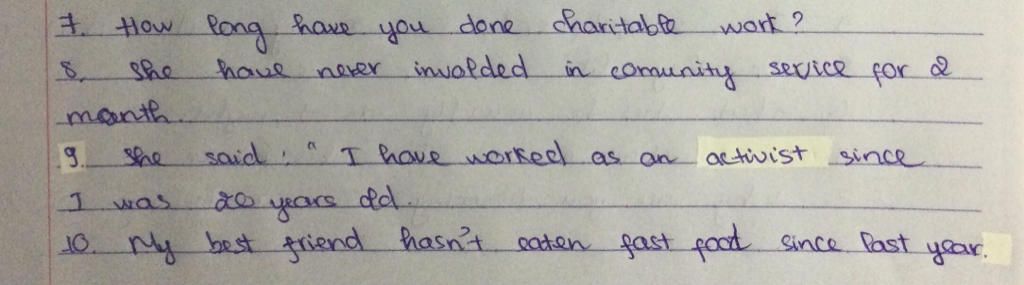 7. How long have you done charitable work?
8. She have never involded in comunity service for 2
month.
9. She said : " I have worked as an activist since
I was 20 years old.
10. My best friend hasn't eaten fast food since last year.